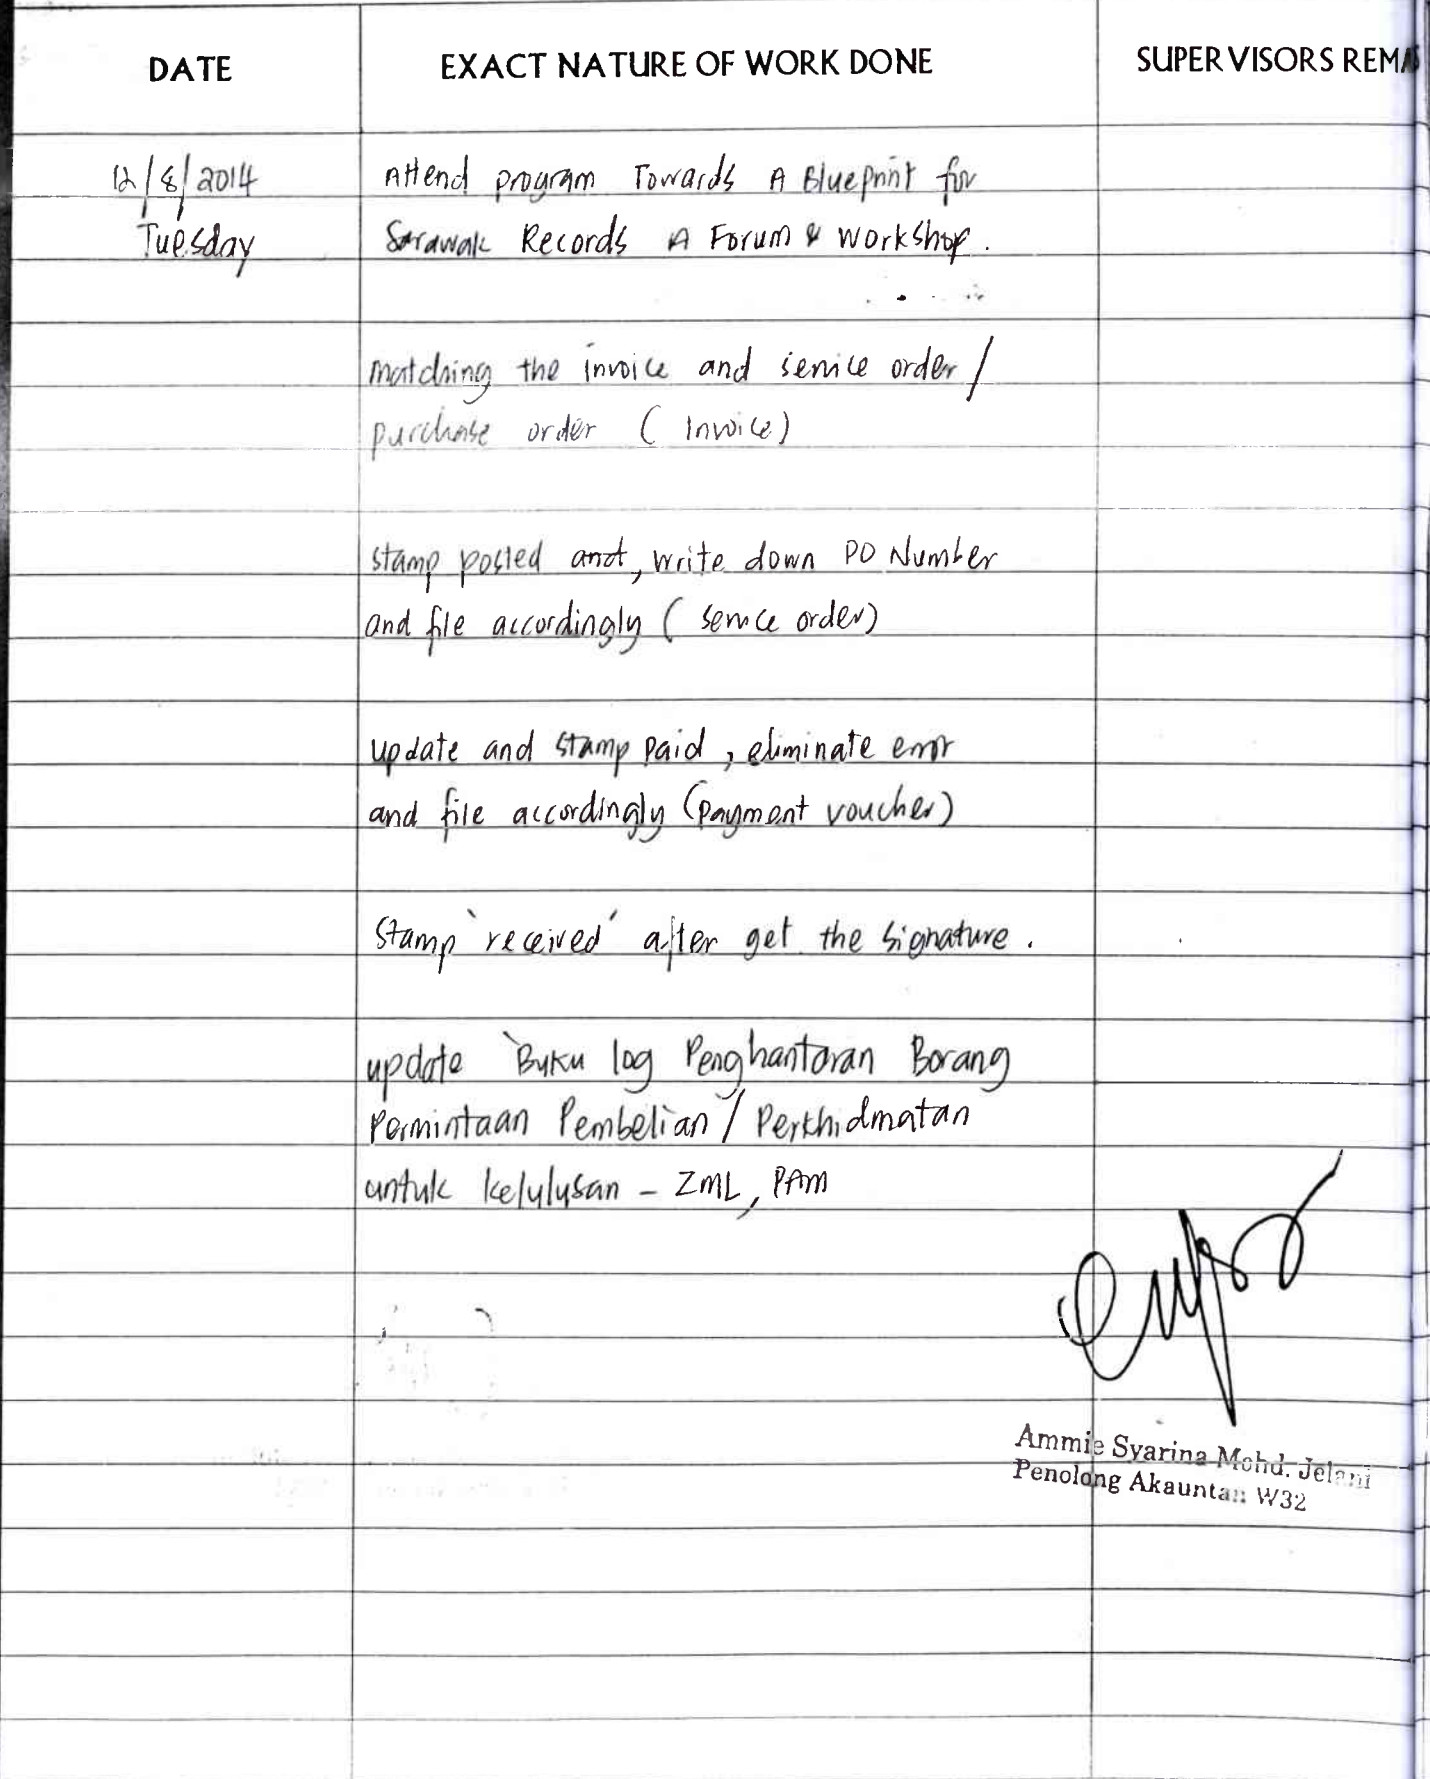 DATE EXACT NATURE OF WORK DONE SUPERVISORS REMA
12/8/2014 Attend program Towards A Blueprint for
Tuesday Sarawak Records A Forum & Workshop.
matching the invoice and service order /
purchase order ( Invoice)
stamp posted and, write down PO Number
and file accordingly ( service order)
update and stamp paid, eliminate error
and file accordingly (payment voucher)
Stamp 'received' after get the signature.
update 'Buku log Penghantaran Borang
Permintaan Pembelian' / Perkhidmatan
untuk kelulusan - ZML, PAM
Ammie Syarina Mohd. Jelani
Penolong Akauntan W32